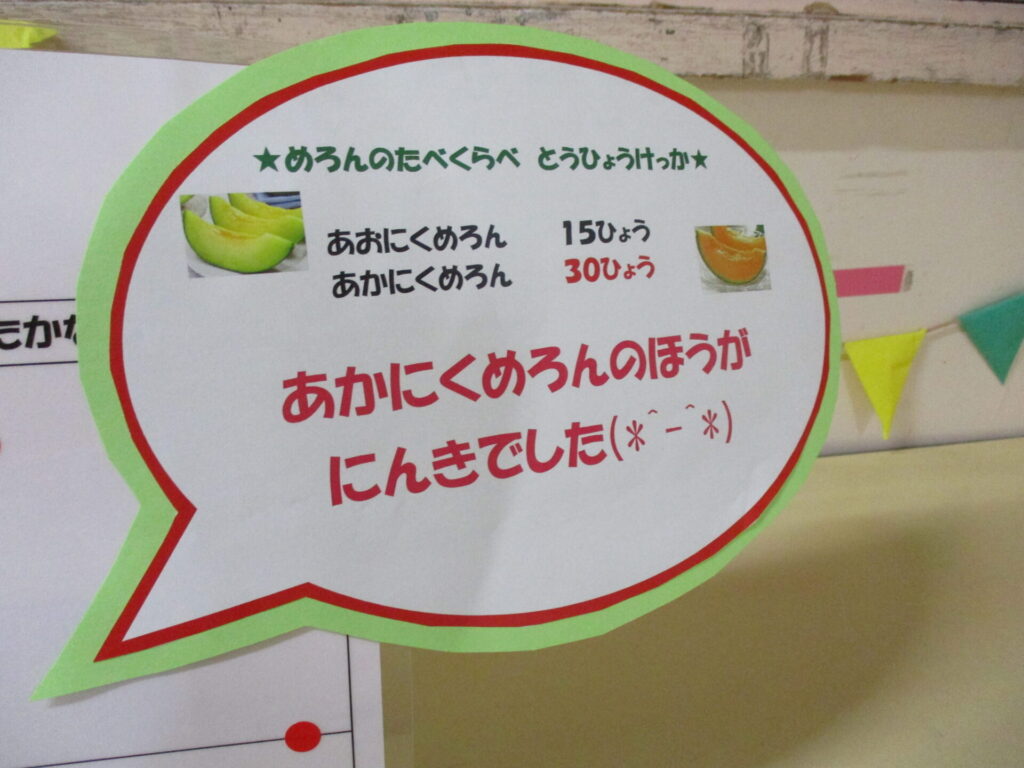 ★めろんのたべくらべ とうひょうけっか★
あおにくめろん 15ひょう
あかにくめろん 30ひょう
あかにくめろんのほうが
にんきでした(*^-^*)